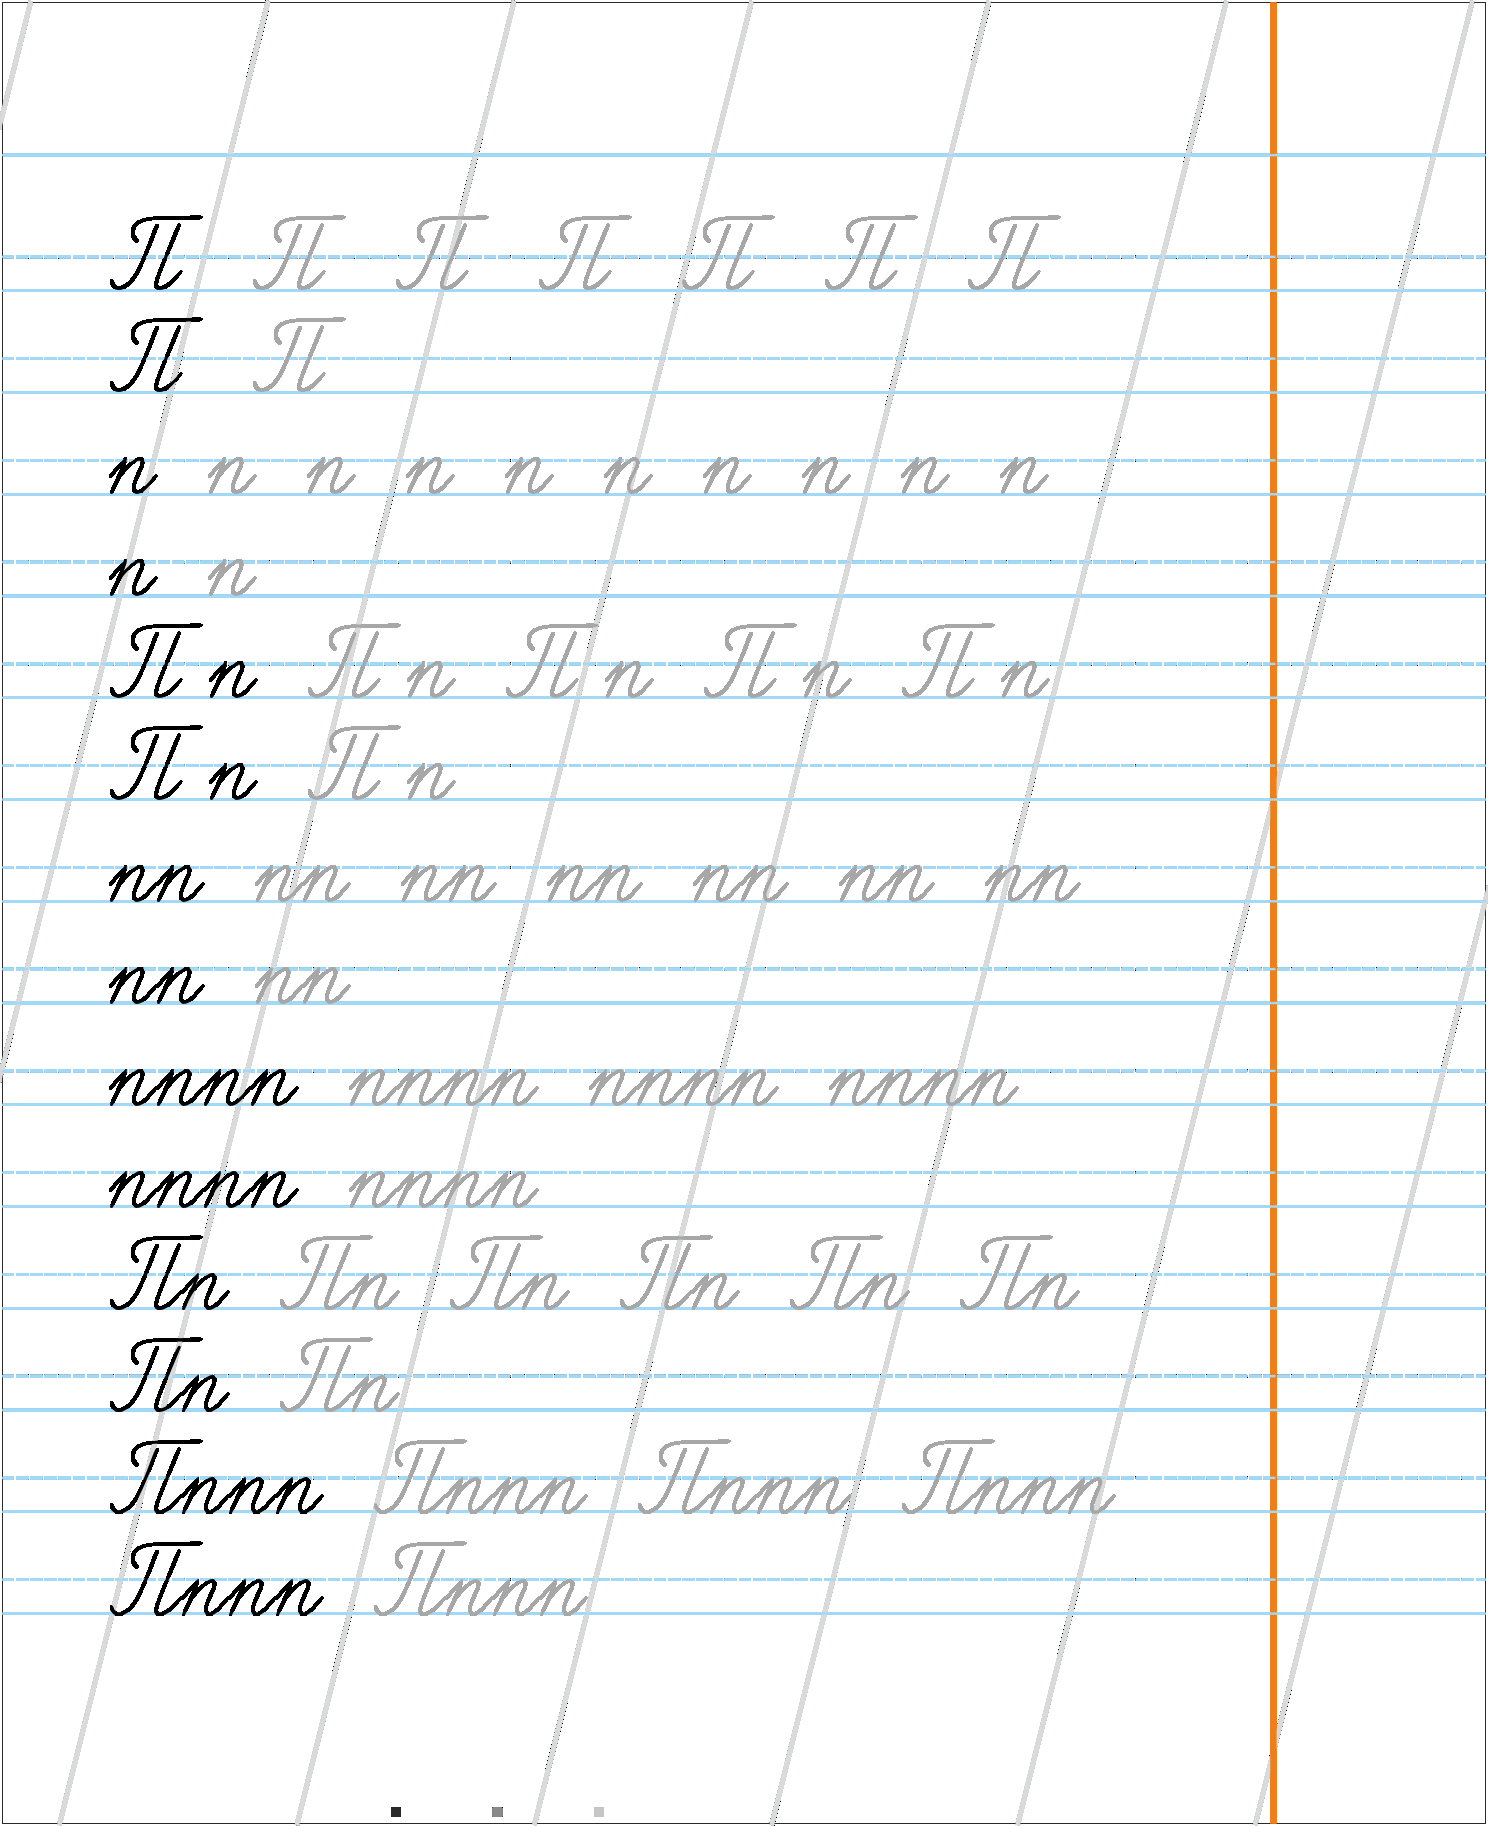 П П П П П П П
П П
п п п п п п п п п п
п п
П п П п П п П п П п
П п П п
пп пп пп пп пп пп пп
пп пп
пппп пппп пппп пппп
пппп пппп
Пп Пп Пп Пп Пп Пп
Пп Пп
Пппп Пппп Пппп Пппп
Пппп Пппп